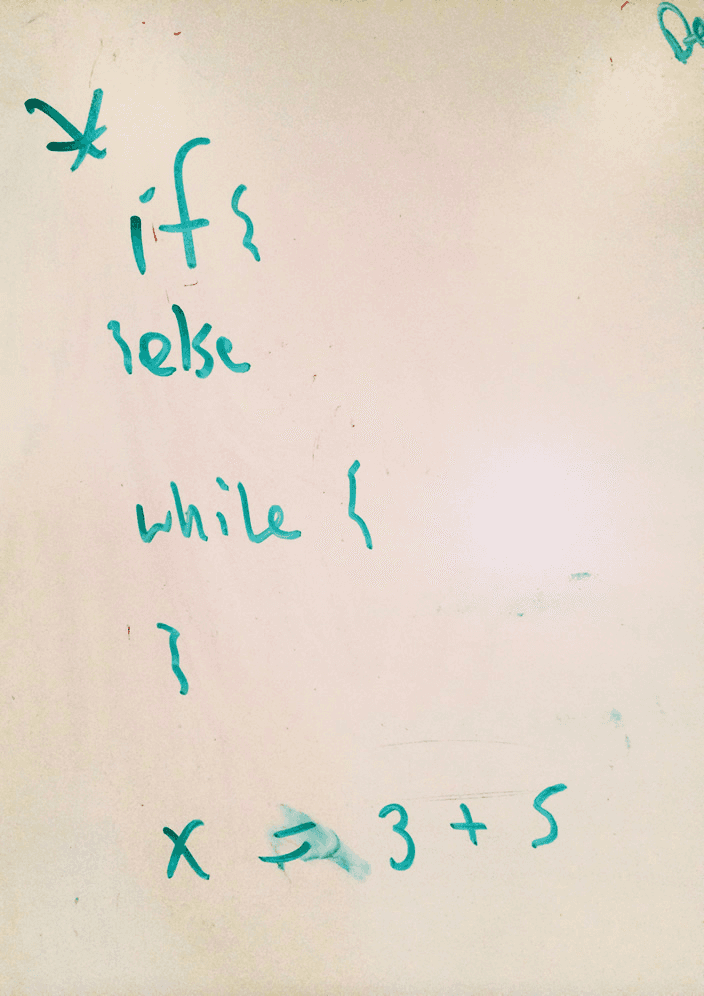 De
*
if {
} else
while {
}
x = 3 + 5